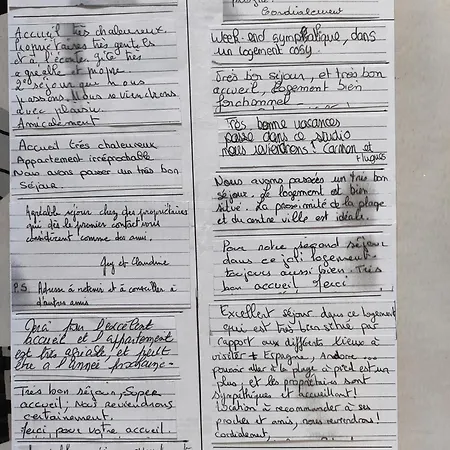 Accueil très chaleureux.
Propriétaires très gentils
et à l'écoute. gîte très
agréable et propre.
2ème séjour que nous
passons. Nous reviendrons
avec plaisir.
Amicalement
Accueil très chaleureux
Appartement irréprochable
Nous avons passer un très bon
Séjour.
Agréable séjour chez des propriétaires
qui dès le premier contact vous
considèrent comme des amis.
Guy et Claudine
P.S. Adresse à retenir et à conseiller à
d'autres amis
Merci pour l'excellent
accueil et l'appartement
est très agréable, et peut
être a l'année prochaine-
Très bon séjour, Super
accueil, nous reviendrons
certainement.
Merci pour votre accueil.
Cordialement
Week-end sympathique, dans
un logement cosy.
Très bon séjour, et très bon
accueil, logement bien
fonctionnel
Très bonne vacances
passe dans ce studio
nous reviendrons! Carmen et
Hugues
Nous avons passés un très bon
séjour. Le logement est bien
situé. La proximité de la plage
et du centre ville est idéale.
Pour notre second séjour
dans ce joli logement -
toujours aussi bien. Très
bon accueil, Merci
Excellent séjour dans ce logement
qui est très bien situé par
rapport aux différents lieux à
visiter + Espagne, andorre ...
pouvoir aller à la plage à pied est un
plus, et les propriétaires sont
sympathiques et accueillant!
Location à recommander à ses
proches et amis, nous reviendrons!
Cordialement,